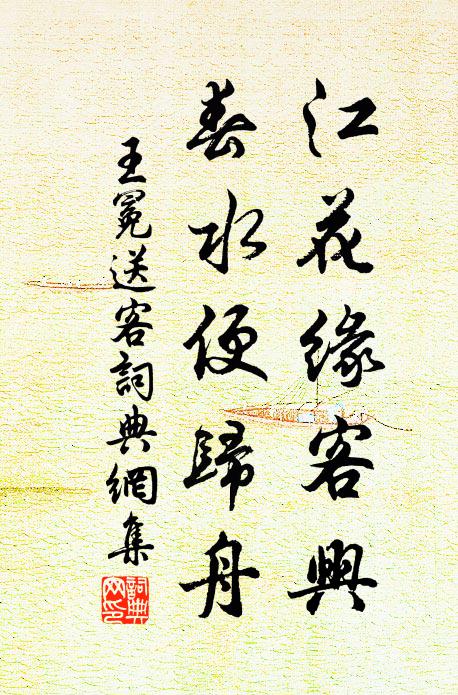 江花緣客興
春水便歸舟
王冕送客詞典網集
詞典網印